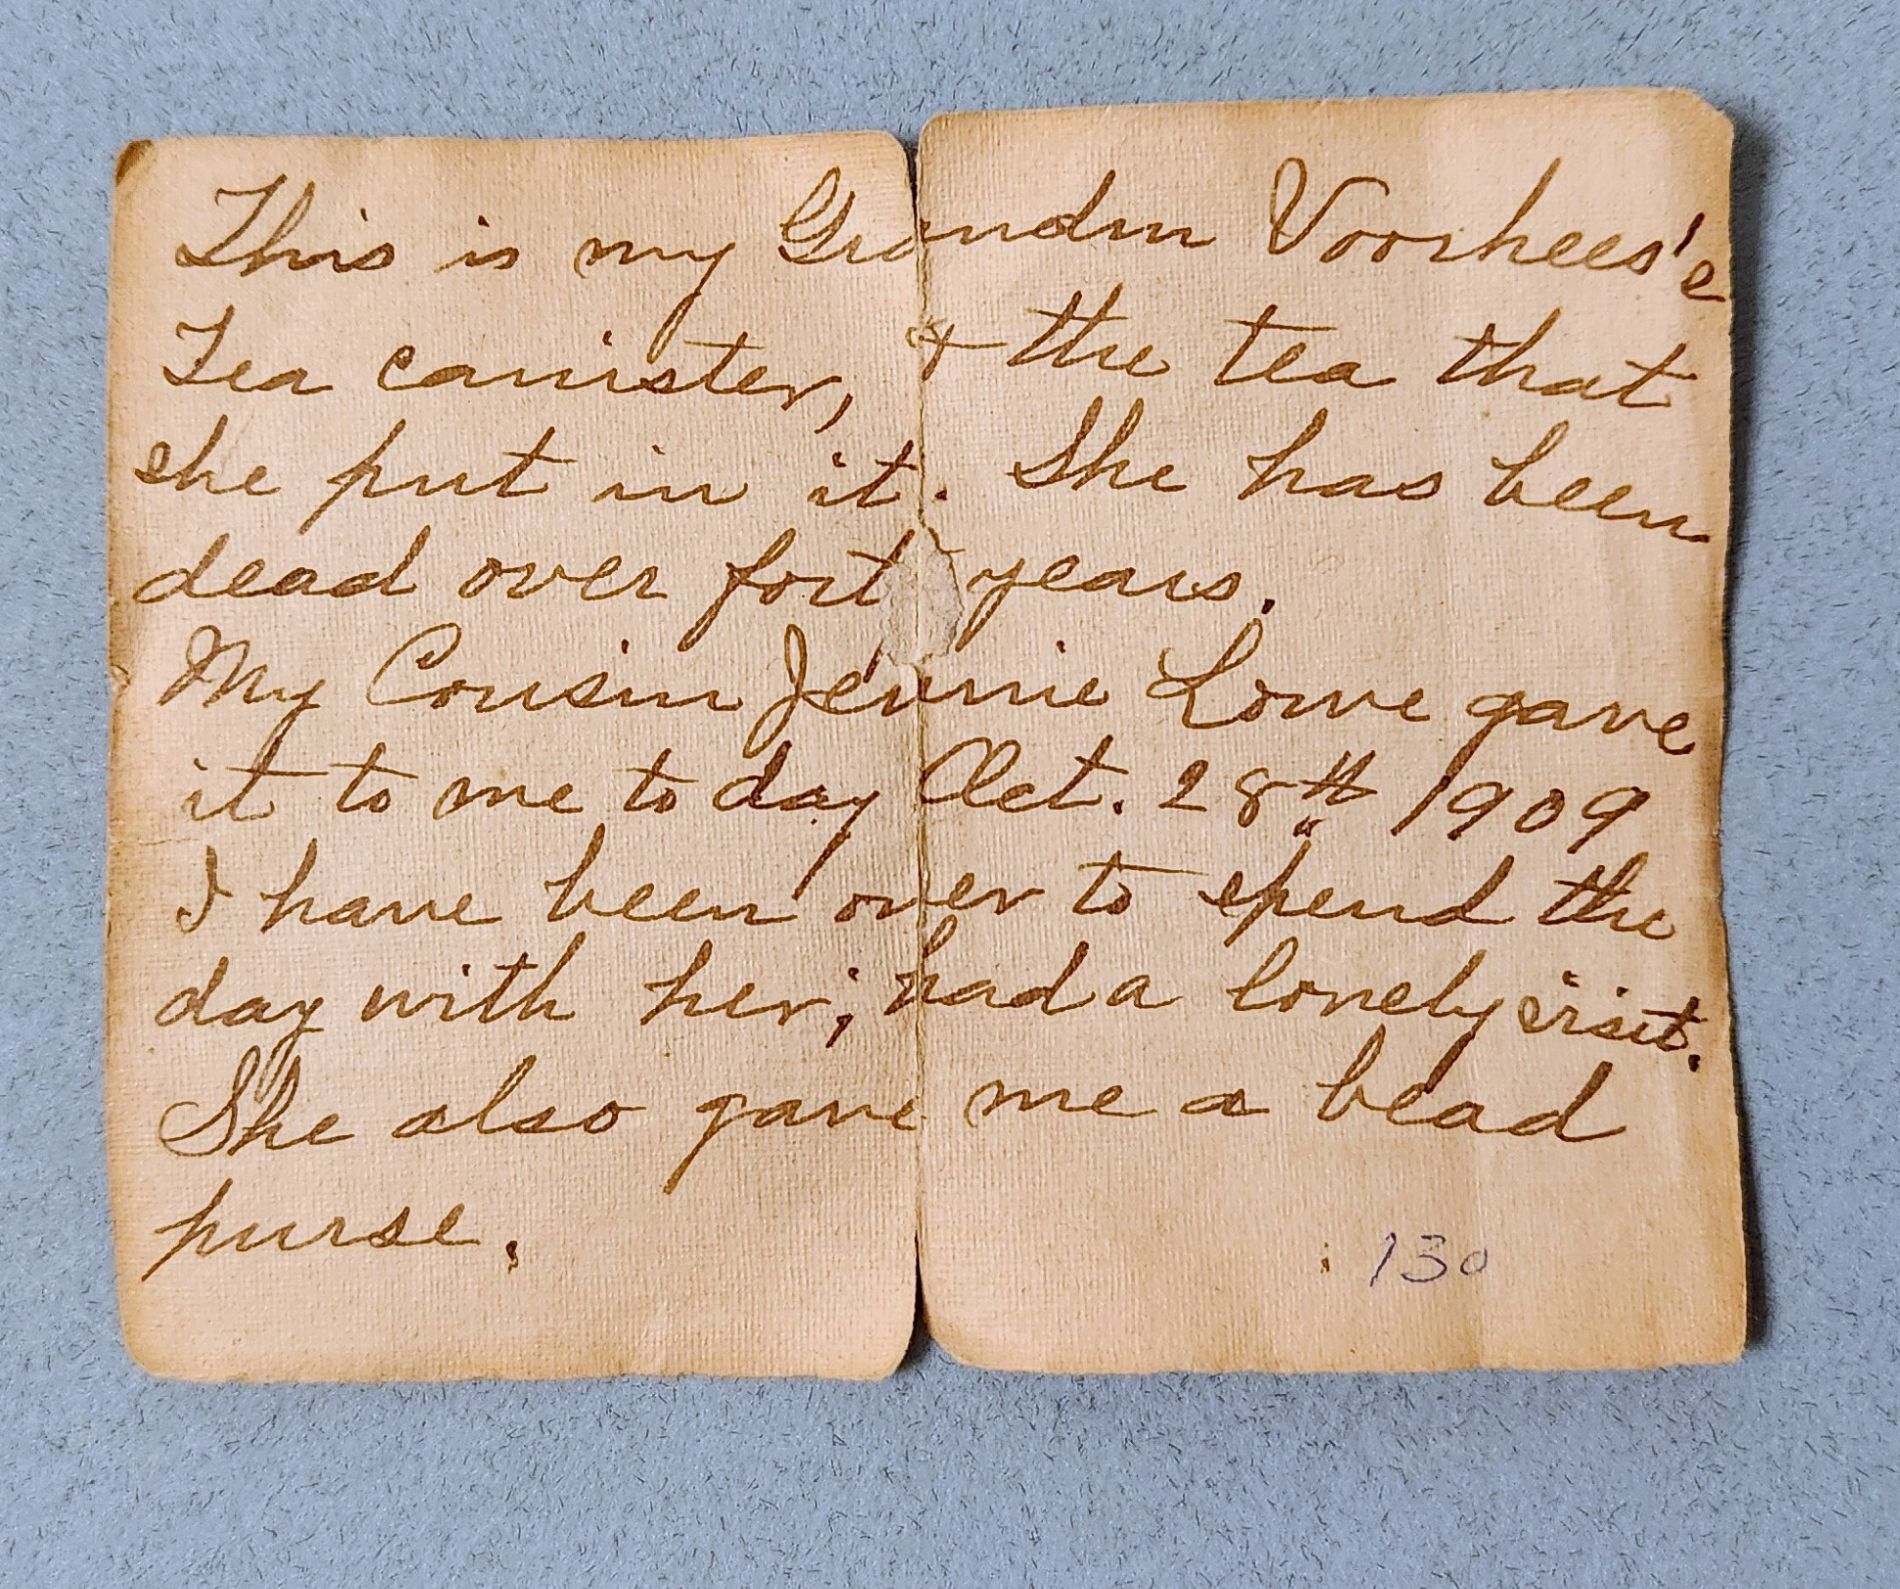 This is my Grandm Voorhees's
Tea canister, & the tea that
she put in it. She has been
dead over fort years.
My Cousin Jennie Lowe gave
it to me to day Oct. 28th 1909
I have been over to spend the
day with her; had a lonely visit.
She also gave me a bead
purse.
130